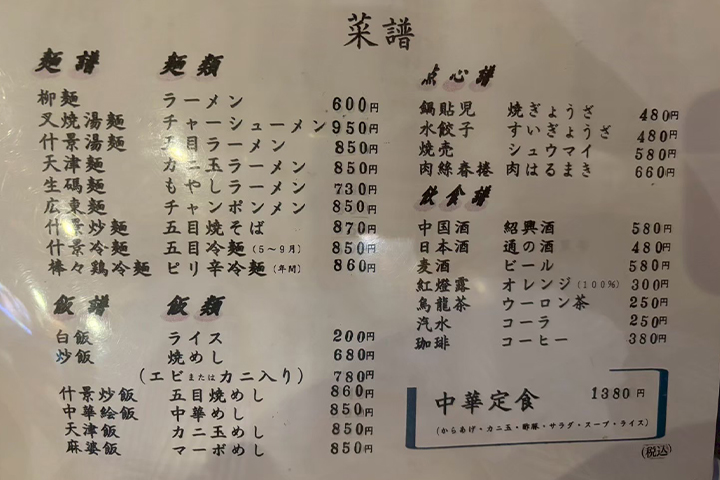 菜譜
麺譜 麺類
柳麺 ラーメン 600円
叉焼湯麺 チャーシューメン 950円
什景湯麺 五目ラーメン 850円
天津麺 カニ玉ラーメン 850円
生碼麺 もやしラーメン 730円
広東麺 チャンポンメン 850円
什景炒麺 五目焼そば 870円
什景冷麺 五目冷麺(5~9月) 850円
棒々鶏冷麺 ピリ辛冷麺(年間) 860円
飯譜 飯類
白飯 ライス 200円
炒飯 焼めし 680円
(エビまたはカニ入り) 780円
什景炒飯 五目焼めし 860円
中華絵飯 中華めし 850円
天津飯 カニ玉めし 850円
麻婆飯 マーボめし 850円
点心譜
鍋貼児 焼ぎょうざ 480円
水餃子 すいぎょうざ 480円
焼売 シュウマイ 580円
肉絲春捲 肉はるまき 660円
飲食譜
中国酒 紹興酒 580円
日本酒 通の酒 480円
麦酒 ビール 580円
紅燈露 オレンジ(100%) 300円
烏龍茶 ウーロン茶 250円
汽水 コーラ 250円
珈琲 コーヒー 380円
中華定食 1380円
(からあげ・カニ玉・酢豚・サラダ・スープ・ライス)
(税込)